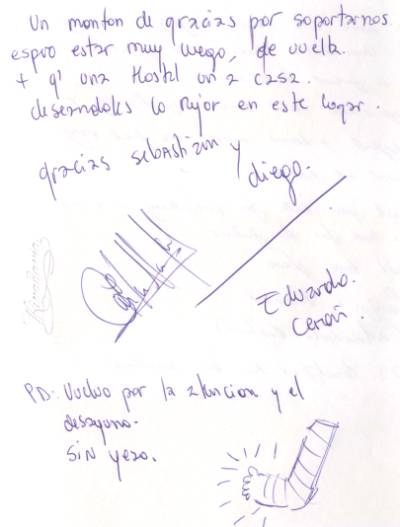 Un monton de gracias por soportarnos
espero estar muy luego, de vuelta.
+ q' una Hostel una casa.
deseandoles lo mejor en este lugar.
gracias sebastian y
diego.
Eduardo.
Cerón.
PD: Vuelvo por la atencion y el
desayuno.
SiN yeso.